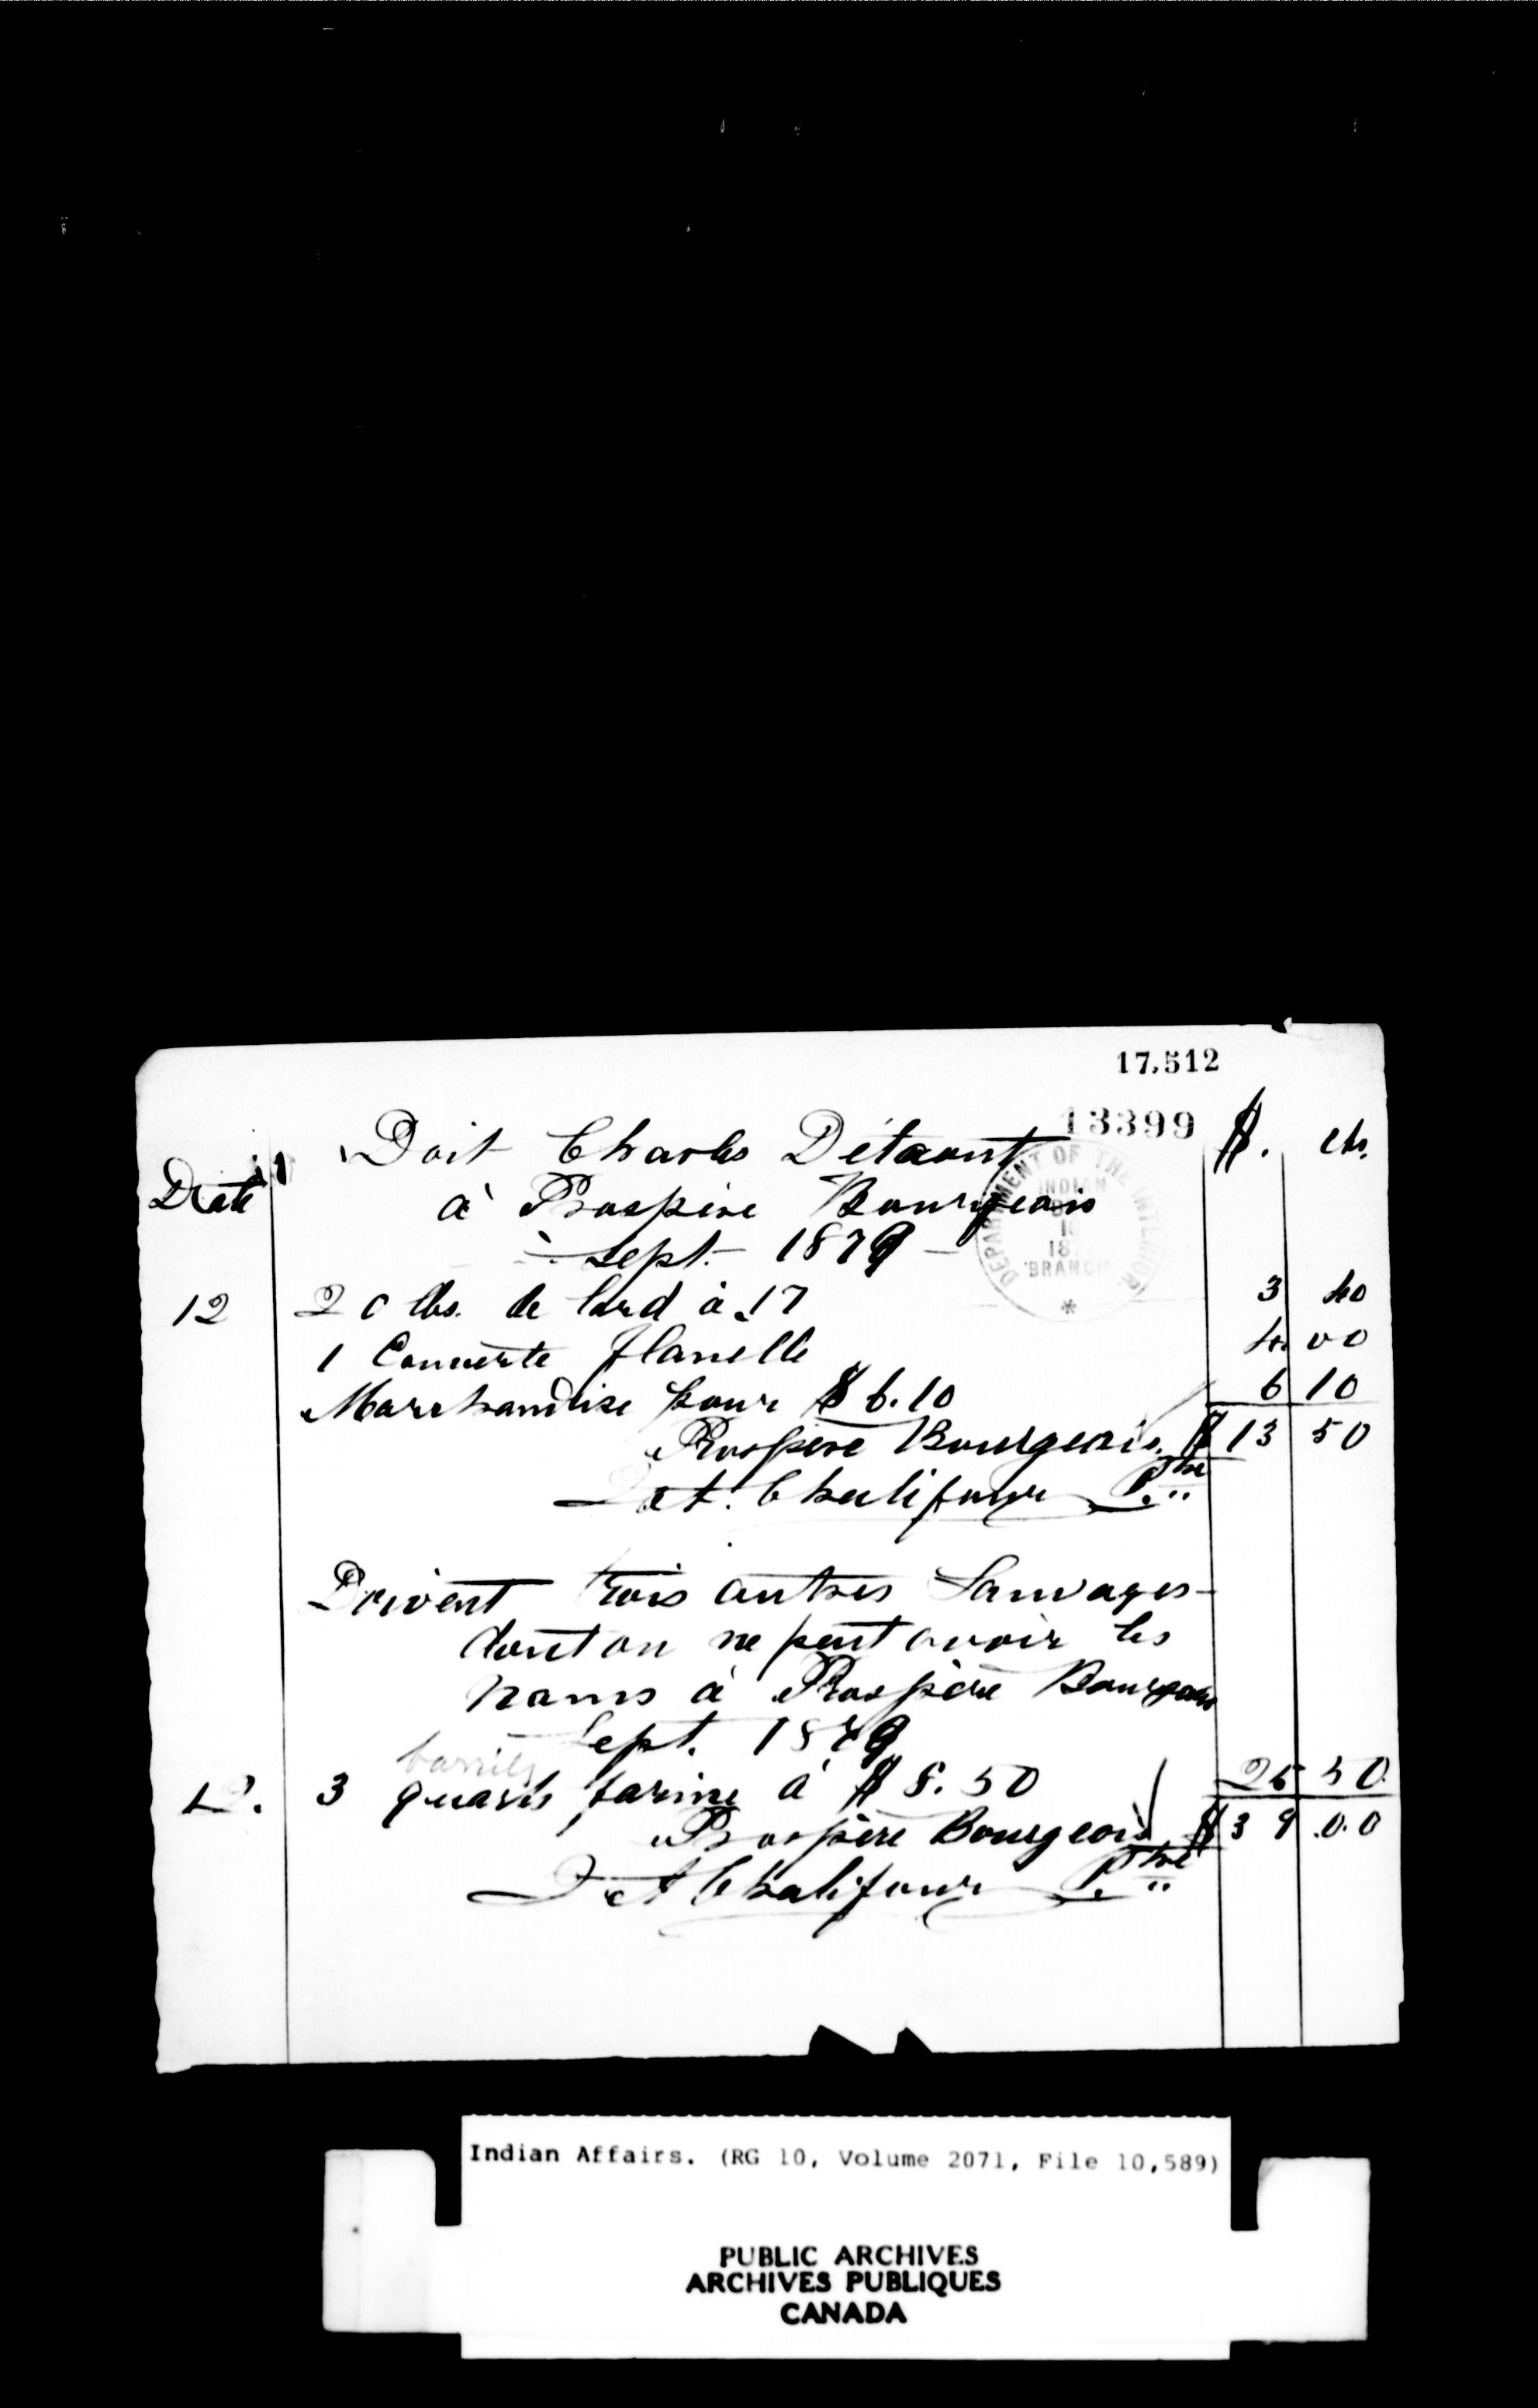 17,512
13399
Doit Charles Détaont $. cts.
Date
à Prospère Bourgeois
Sept. 1879
12 20 lbs. de lard à .17 3 40
1 Couverte flanelle 4 00
Marchandise pour $6.10 6 10
Prospère Bourgeois. $13 50
Chalifour Ptre
Doivent trois autres Sauvages
dont on ne peut avoir les
noms à Prospère Bourgeois
Sept. 1879
barrils
12. 3 quarts farine à $8.50 25 50
Prospère Bourgeois $39.00
Chalifour Ptre
DEPARTMENT OF THE INTERIOR
INDIAN
BRANCH
Indian Affairs. (RG 10, Volume 2071, File 10,589)
PUBLIC ARCHIVES
ARCHIVES PUBLIQUES
CANADA